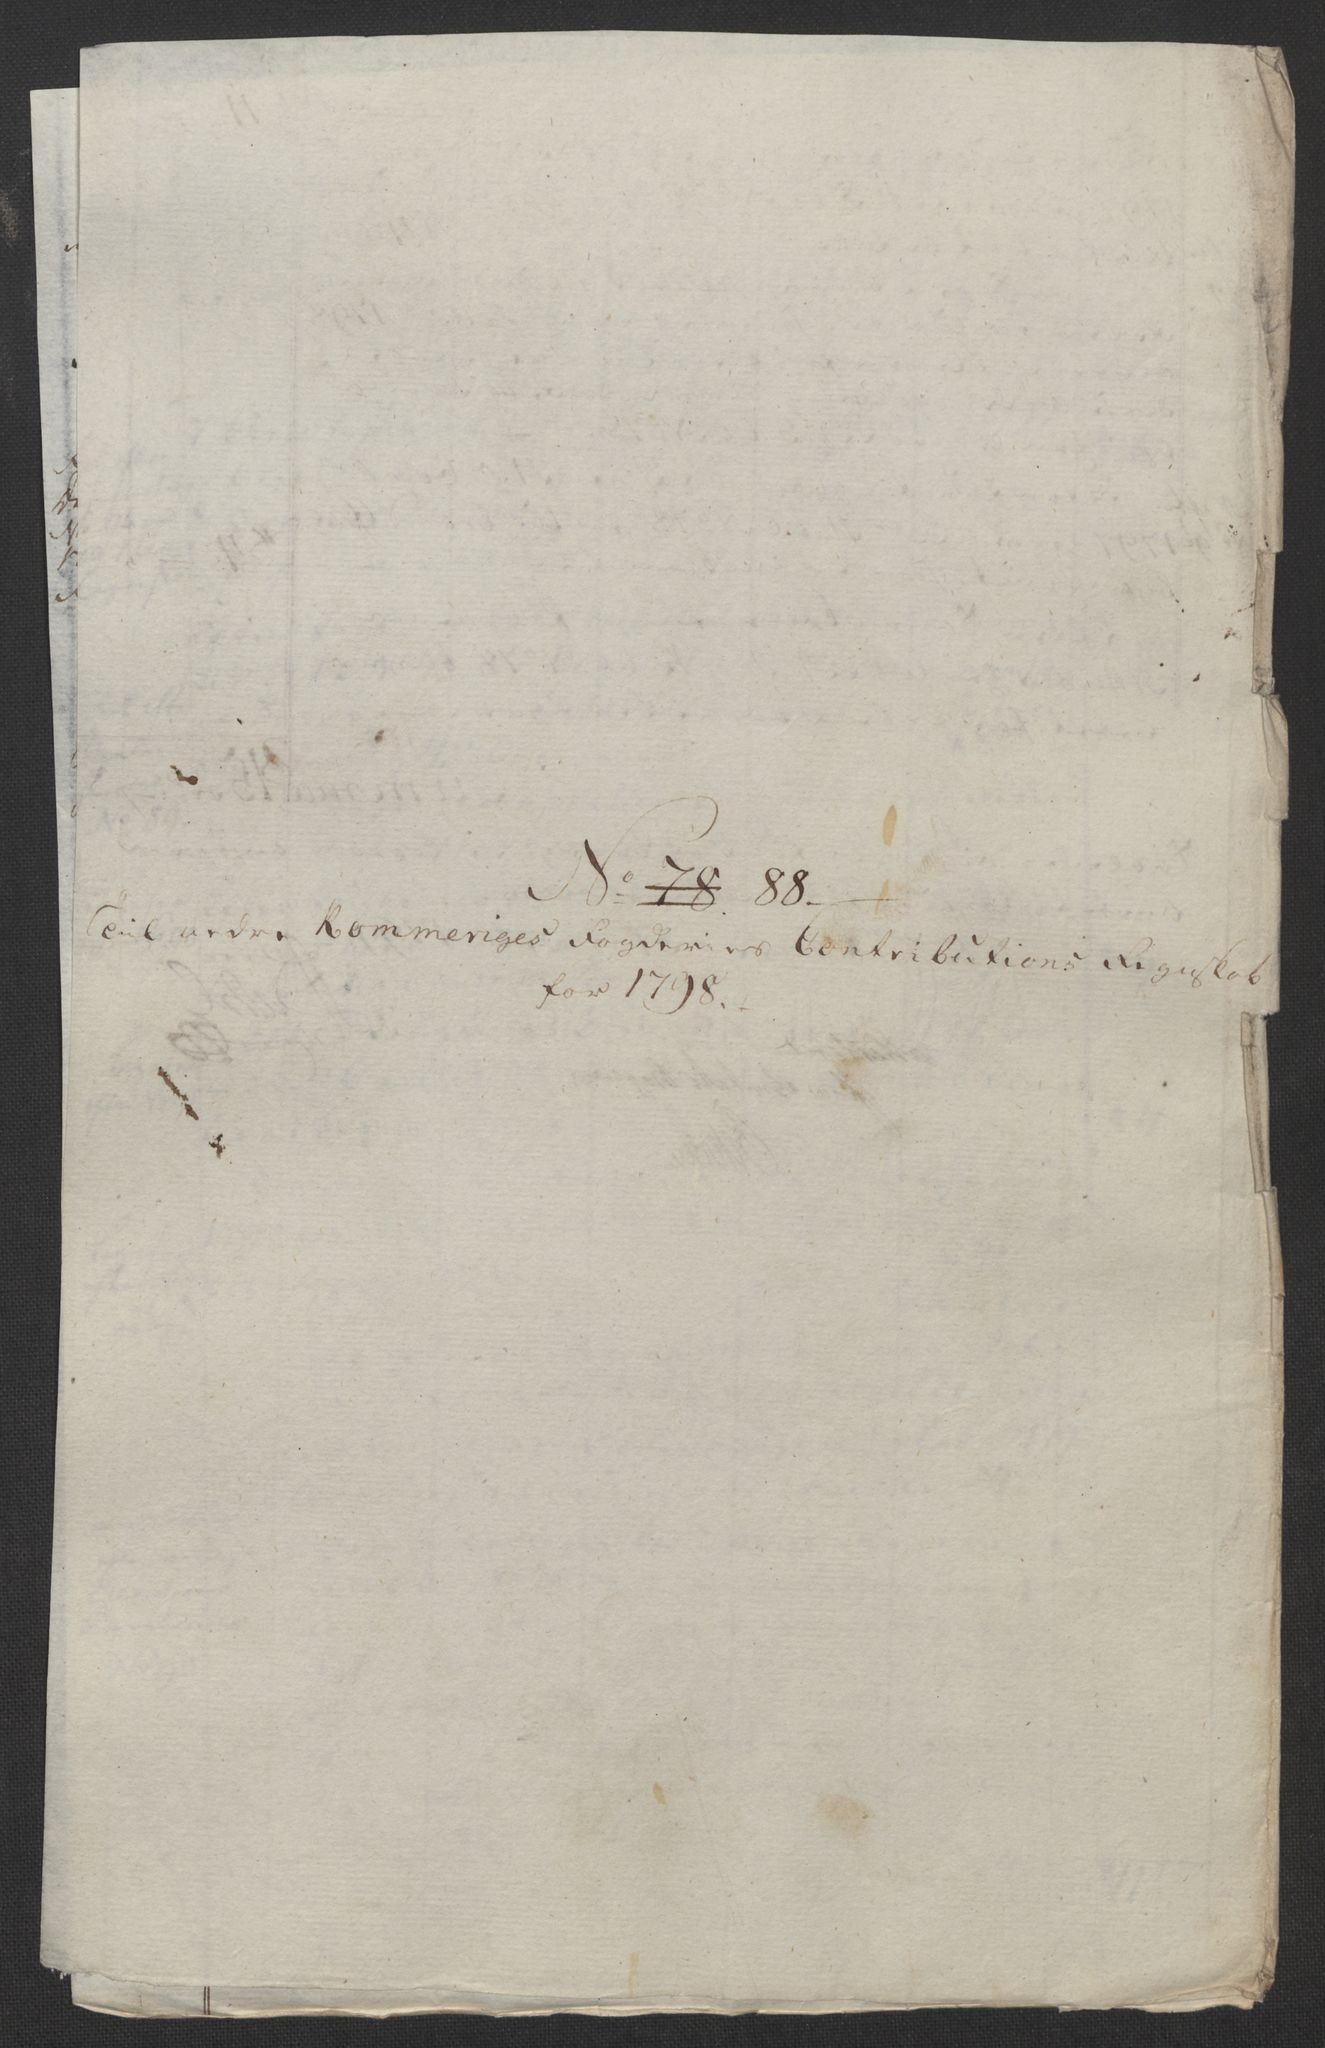 No 78. 88.
Til nedre Rommeriges Fogderies Contributions Regnskab
for 1798.